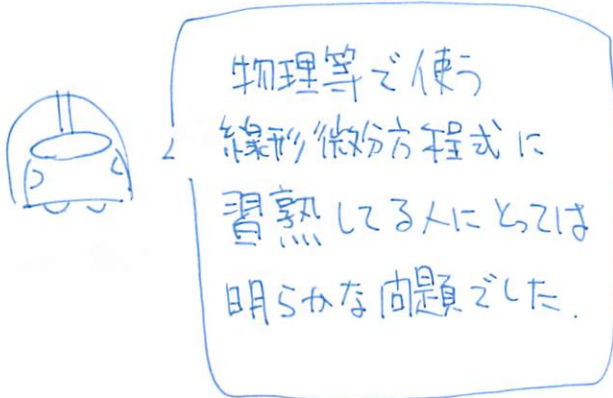 物理等で使う
線形微分方程式に
習熟してる人にとっては
明らかな問題でした.